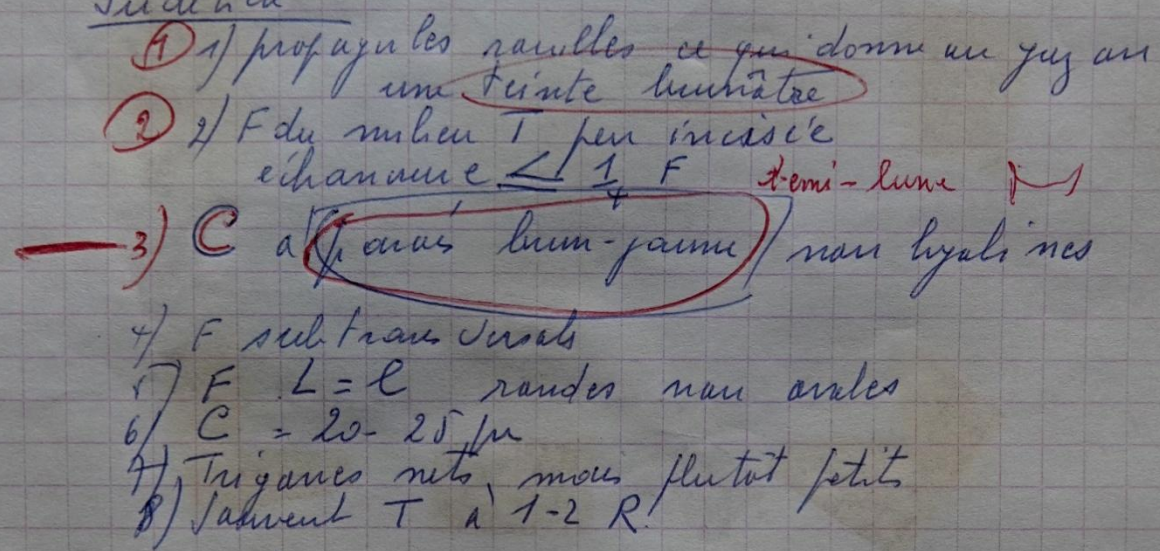 ① 1) propagules rouilles ce qui donne au gaz an
une teinte brunâtre
② 2) F du milieu T peu incisée
échancrure ≤ 1/4 F demi-lune
3) C à parois brun-jaune / non hyalines
4) F subtransversales
5) F L = l rondes non ovales
6) C = 20-25 µ
7) Trigones nets, mais plutôt petits
8) Souvent T à 1-2 R!